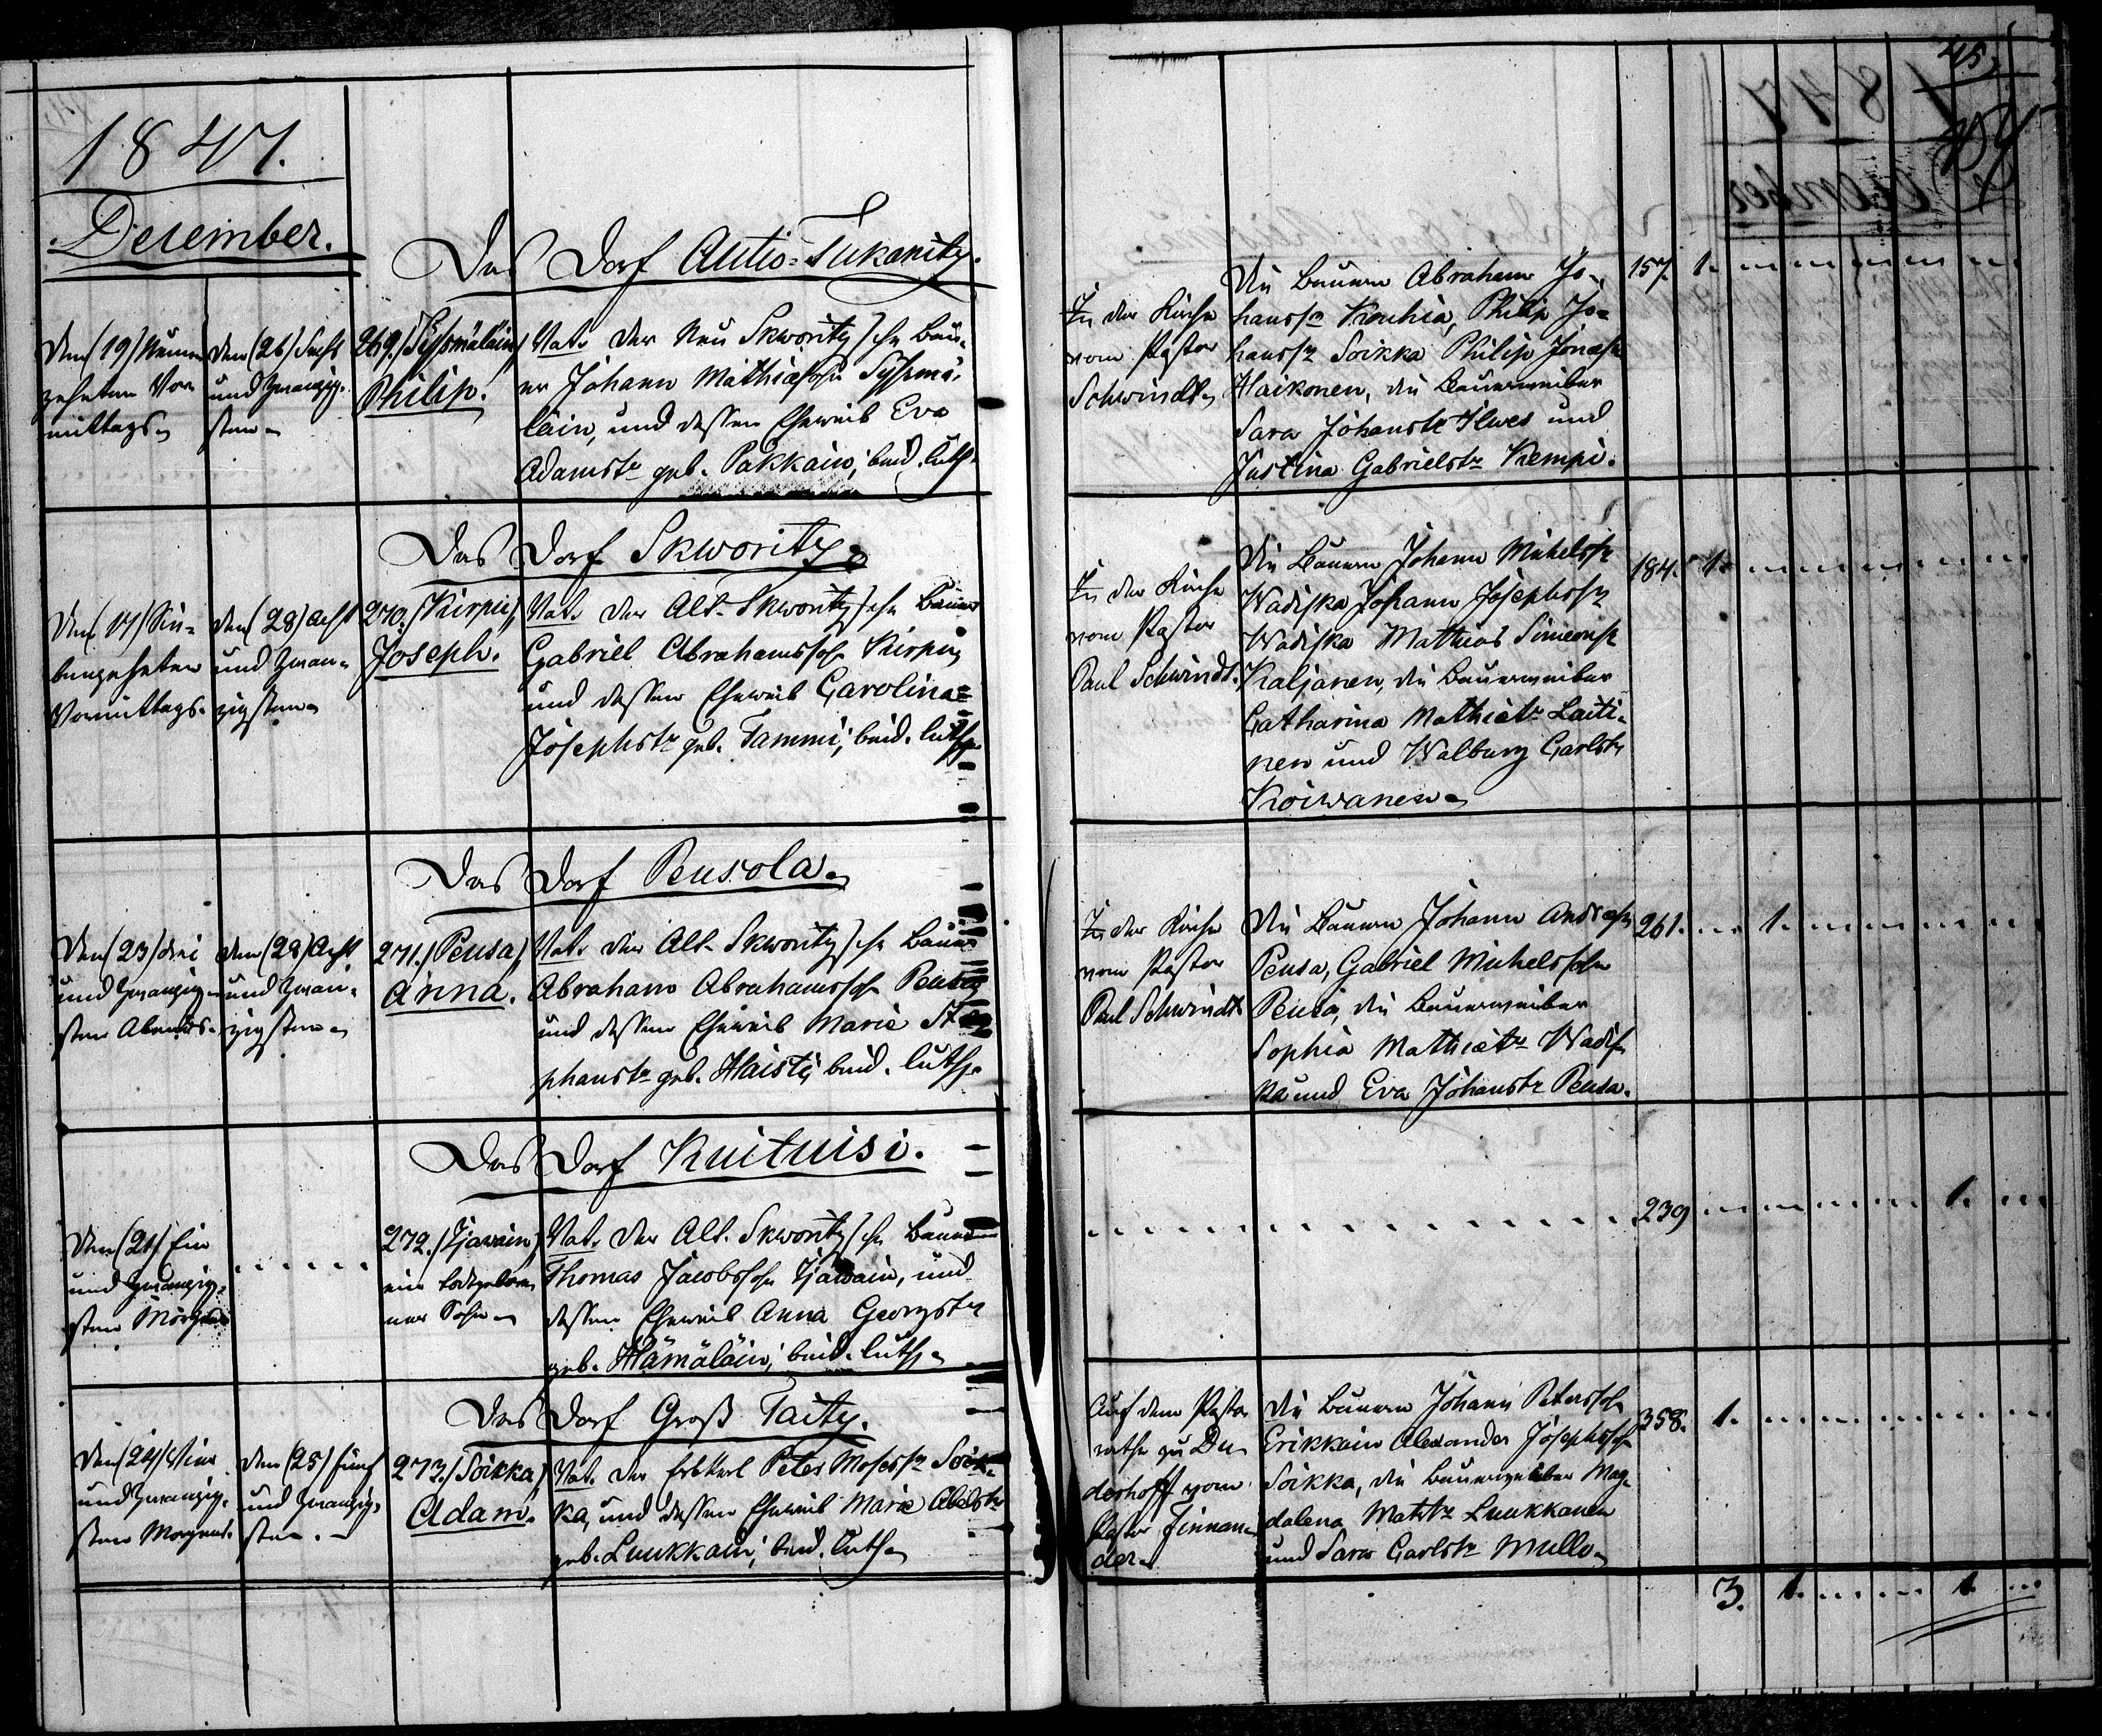 1847.
December.
Das Dorf Autio-Tukanitz.
Den (19) Neun-
zehnten Vor-
mittags.
den (26) Sechs
und zwanzig-
sten.
269. (Syssmäläin)
Philip.
Vat. der Neu Skworitzsche Bau-
er Johann Mathiassohn Syssmä-
läin, und dessen Eheweib Eva
Adamstr geb. Pakkain; beid. luth.
In der Kirche
vom Pastor
Schwindt.
Die Bauern Abraham Jo-
hanssn Kouhia, Philip Jo-
hanssn Soikka Philip Jonassn
Haikonen, die Bauerweiber
Sara Johanstr Ilwes und
Justina Gabrielstr Kempi.
157. 1.
Das Dorf Skworitz.
Den (17) Sie-
benzehnten
Vormittags.
den (28) Acht
und zwan-
zigsten.
270. (Kirpu)
Joseph.
Vat. der Alt-Skworitzsche Bauer
Gabriel Abrahamssohn Kirpu
und dessen Eheweib Carolina
Josephstr geb. Tammi; beid. luth.
In der Kirche
vom Pastor
Paul Schwindt.
Die Bauern Johann Michelssn
Wadiska Johann Josephssn
Wadiska Mathias Simonssn
Kaljanen, die Bauerweiber
Catharina Mathiastr Laiti-
nen und Walburg Carlstr
Koiwanen.
184. 1.
Das Dorf Peusola.
Den (23) drei
und zwanzig-
sten Abends.
den (28) Acht
und zwan-
zigsten.
271. (Peusa)
Anna.
Vat. der Alt-Skworitzsche Bauer
Abraham Abrahamssohn Peusa
und dessen Eheweib Maria Ste-
phanstr geb. Haisti; beid. luth.
In der Kirche
vom Pastor
Paul Schwindt
Die Bauern Johann Andreassn
Peusa, Gabriel Michelssohn
Peusa, die Bauerweiber
Sophia Mathiastr Wadis-
ka und Eva Johanstr Peusa.
261. 1.
Das Dorf Kuituisi.
Den (21) Ein
und zwanzig-
sten Morgens
272. (Tjawain)
ein todtgebore-
ner Sohn.
Vat. der Alt-Skworitzsche Bauer
Thomas Jacobssohn Tjawain, und
dessen Eheweib Anna Georgstr
geb. Hämäläin; beid. luth.
239 1.
Das Dorf Groß Taitz.
Den (24) Vier
und zwanzig-
sten Morgens.
den (25) fünf
und zwanzig-
sten.
273. (Soikka)
Adam.
Vat. der Erbkerl Peter Mosessn Soik-
ka, und dessen Eheweib Maria Abelstr
geb. Luukkain; beid. luth.
Auf dem Pasto-
rathe zu Du-
derhoff vom
Pastor Finnan-
der.
Die Bauern Johann Peterssohn
Erikkain Alexander Josephssohn
Soikka, die Bauerweiber Mag-
dalena Matstr Luukkanen
und Sara Carlstr Mullo.
358. 1.
3. 1. 1.